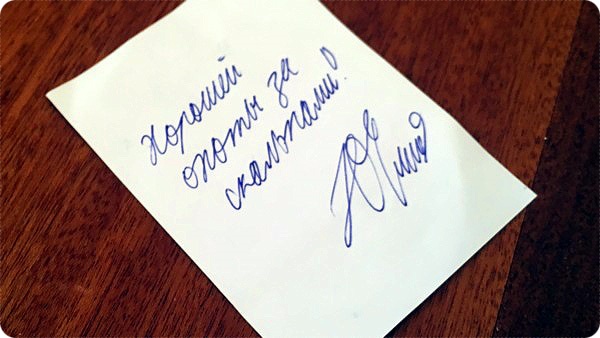 Хорошей
охоты за
скальпами!